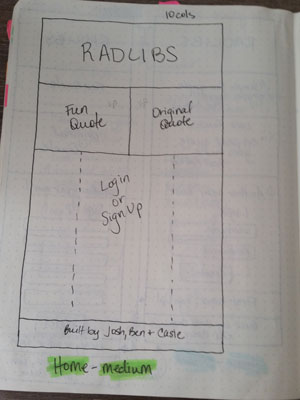 10 cols
RADLIBS
Fun
Quote
Original
Quote
Login
or
Sign Up
Built by Josh, Ben + Casie
Home - medium